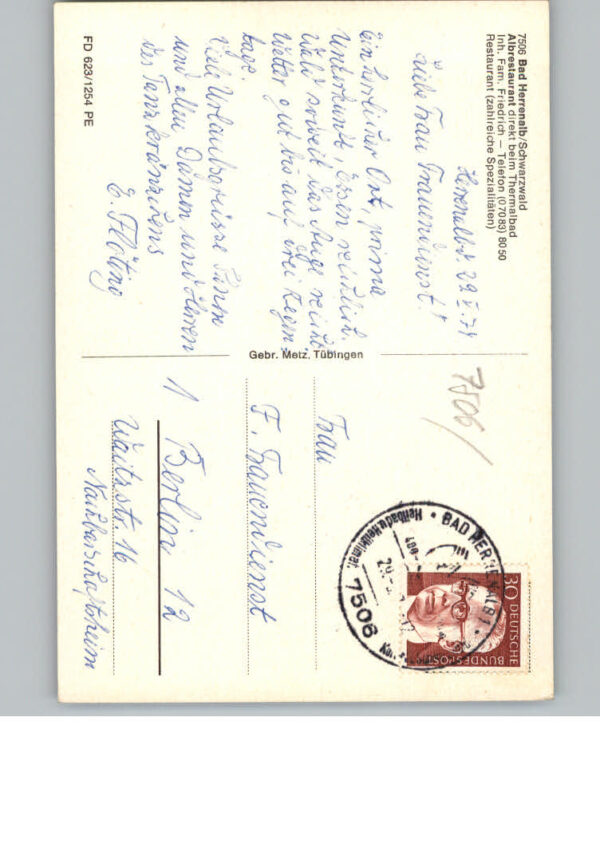 7506 Bad Herrenalb/Schwarzwald
Albrestaurant direkt beim Thermalbad
Inh. Fam. Friedrich — Telefon (07083) 8050
Restaurant (zahlreiche Spezialitäten)
Herrenalb 29.V.74
Liebe Frau Frauendienst!
Ein herrlicher Ort, prima
Unterkunft, Essen reichlich.
Wald soweit das Auge reicht.
Wetter gut bis auf drei Regen-
tage.
Viele Urlaubsgrüsse Ihnen
und allen Damen und Herren
des Tanzkränzchens
E. Flöting
FD 623/1254 PE
Gebr. Metz, Tübingen
7506/
Frau
F. Frauendienst
1 Berlin 12
Waitzstr. 16
Nachbarschaftsheim
BAD HERRENALB 1
7506
Heilbad u Heilklimat.
30 DEUTSCHE
BUNDESPOST